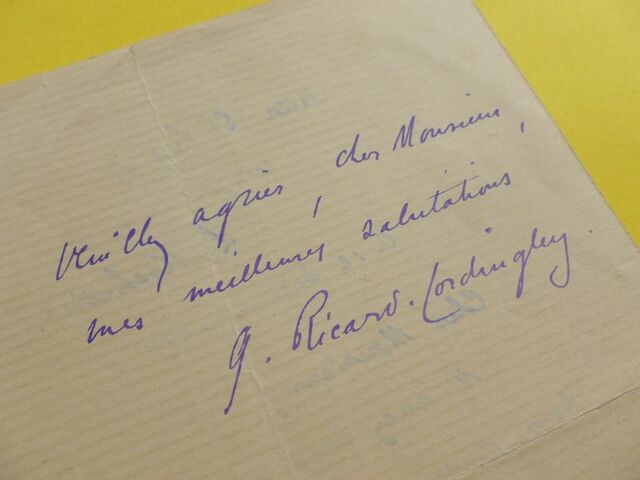 Veuillez agréer, cher Monsieur,
mes meilleures salutations,
G. Ricard-Cordingley.